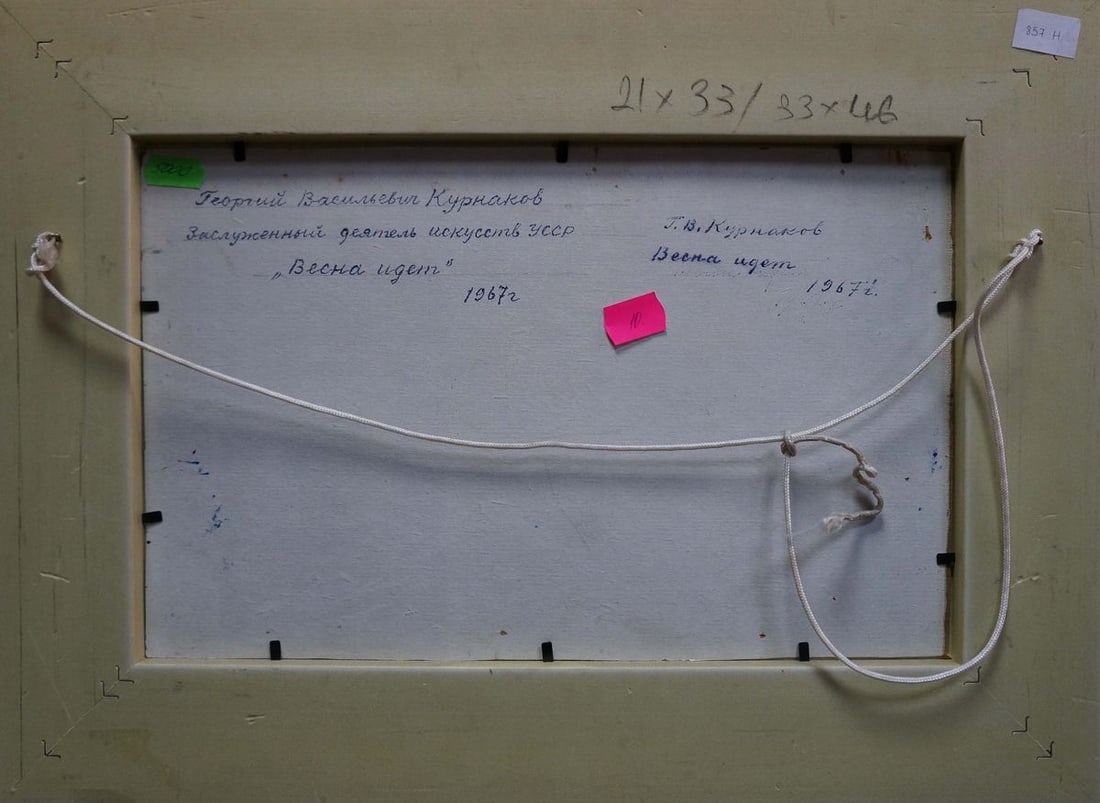 857 Н
21 x 33 / 33 x 46
Георгий Васильевич Курнаков
Заслуженный деятель искусств УССР
„Весна идет"
1967г
Г. В. Курнаков
Весна идет
1967г.
10.